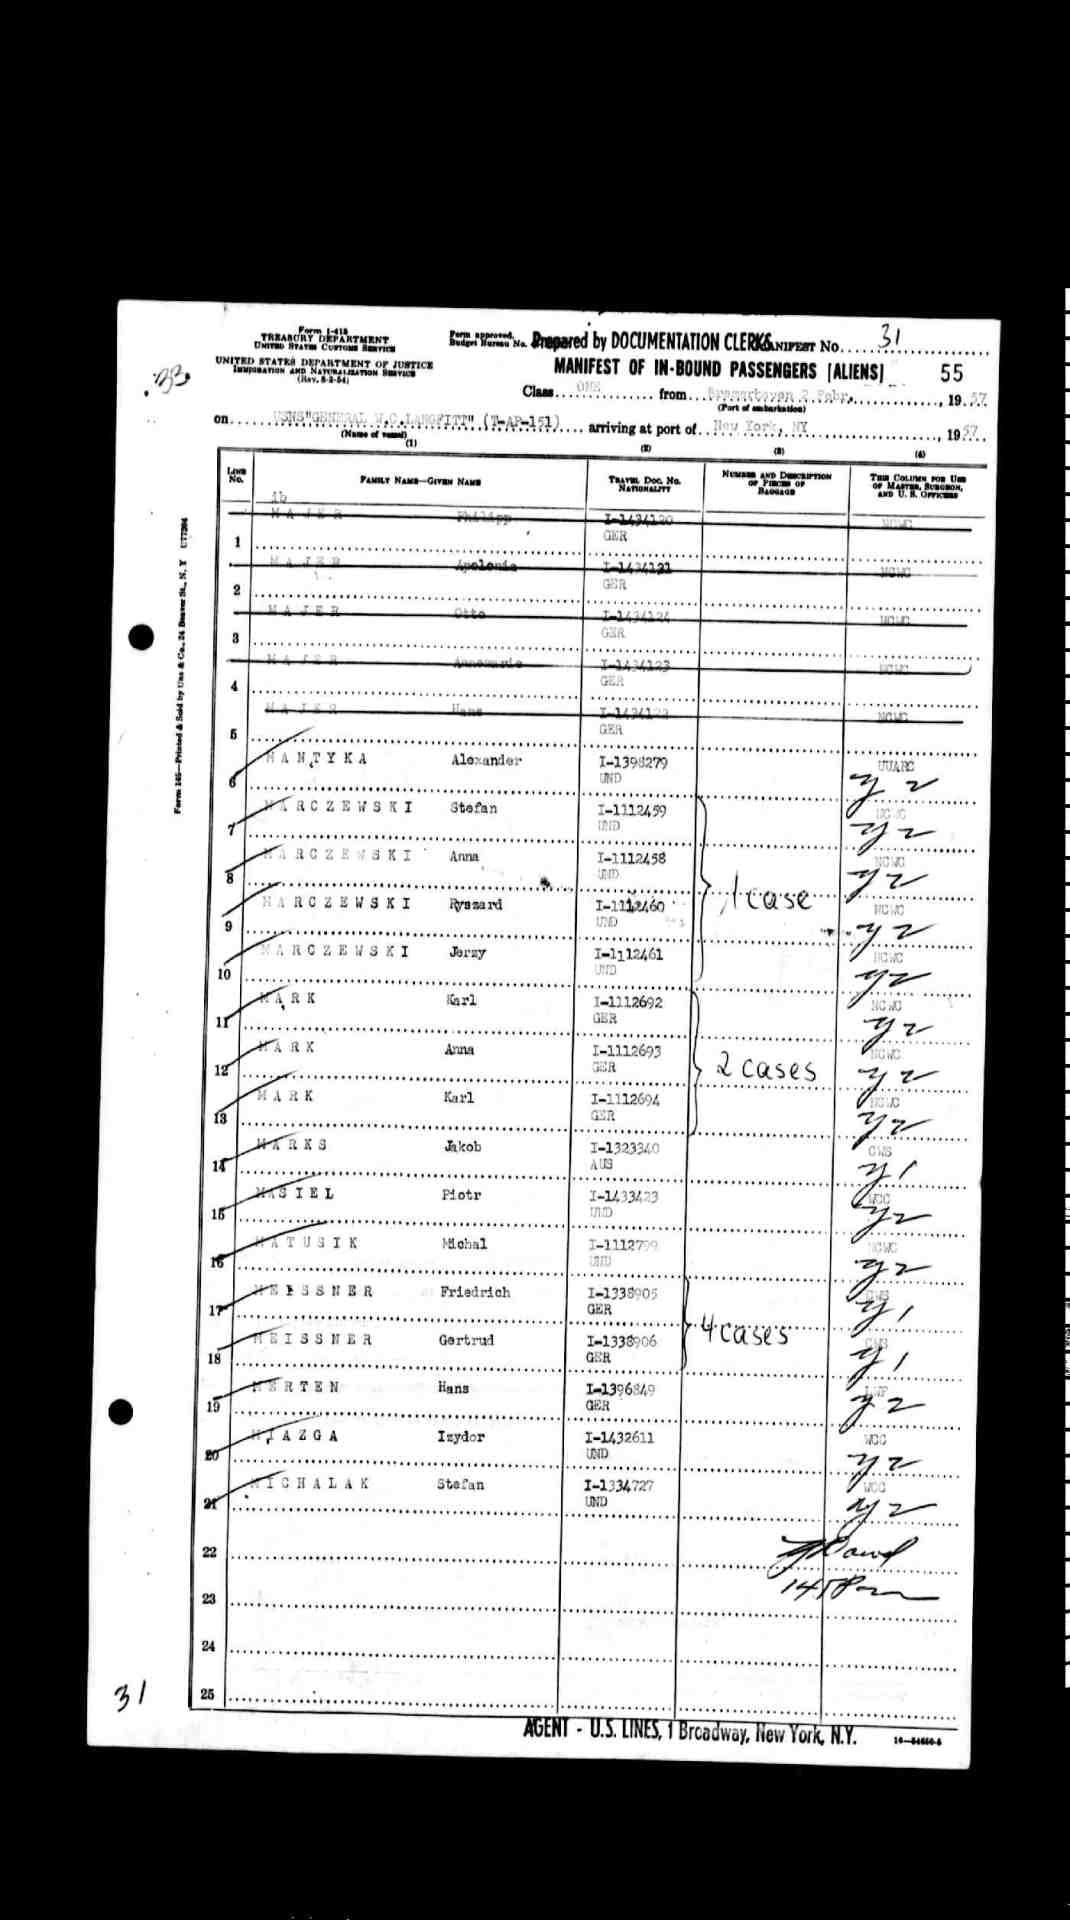 Form I-418
TREASURY DEPARTMENT
UNITED STATES CUSTOMS SERVICE
UNITED STATES DEPARTMENT OF JUSTICE
IMMIGRATION AND NATURALIZATION SERVICE
(Rev. 8-2-54)
Form approved.
Budget Bureau No.
Prepared by DOCUMENTATION CLERKS
MANIFEST No. 31
MANIFEST OF IN-BOUND PASSENGERS (ALIENS) 55
33
Class ONE from Bremerhaven 2 Febr., 1957
(Port of embarkation)
on USNS"GENERAL W.C.LANGFITT" (T-AP-151) arriving at port of New York, NY, 1957
(Name of vessel)
(1) (2) (3) (4)
LINE No. FAMILY NAME—GIVEN NAME TRAVEL DOC. No. NATIONALITY NUMBER AND DESCRIPTION OF PIECES OF BAGGAGE THIS COLUMN FOR USE OF MASTER, SURGEON, AND U. S. OFFICERS
4b
1 MAJER Philipp I-1434120 GER NCWC
2 MAJER Apolonia I-1434121 GER NCWC
3 MAJER Otto I-1434124 GER NCWC
4 MAJER Annemarie I-1434123 GER NCWC
5 MAJER Hans I-1434122 GER NCWC
6 MANTYKA Alexander I-1398279 UND UUARC y2
7 MARCZEWSKI Stefan I-1112459 UND NCWC y2
8 MARCZEWSKI Anna I-1112458 UND 1 case NCWC y2
9 MARCZEWSKI Ryszard I-1112460 UND NCWC y2
10 MARCZEWSKI Jerzy I-1112461 UND NCWC y2
11 MARK Karl I-1112692 GER NCWC y2
12 MARK Anna I-1112693 GER 2 cases NCWC y2
13 MARK Karl I-1112694 GER NCWC y2
14 MARKS Jakob I-1323340 AUS CWS y1
15 MASIEL Piotr I-1433423 UND WCC y2
16 MATUSIK Michal I-1112799 UND NCWC y2
17 MEISSNER Friedrich I-1338905 GER CWS y1
18 MEISSNER Gertrud I-1338906 GER 4 cases CWS y1
19 MERTEN Hans I-1396849 GER LWF y2
20 MIAZGA Izydor I-1432611 UND WCC y2
21 MICHALAK Stefan I-1334727 UND WCC y2
22
23
24
25
31
AGENT - U.S. LINES, 1 Broadway, New York, N.Y.
Form 145—Printed & Sold by Unz & Co., 24 Beaver St., N. Y